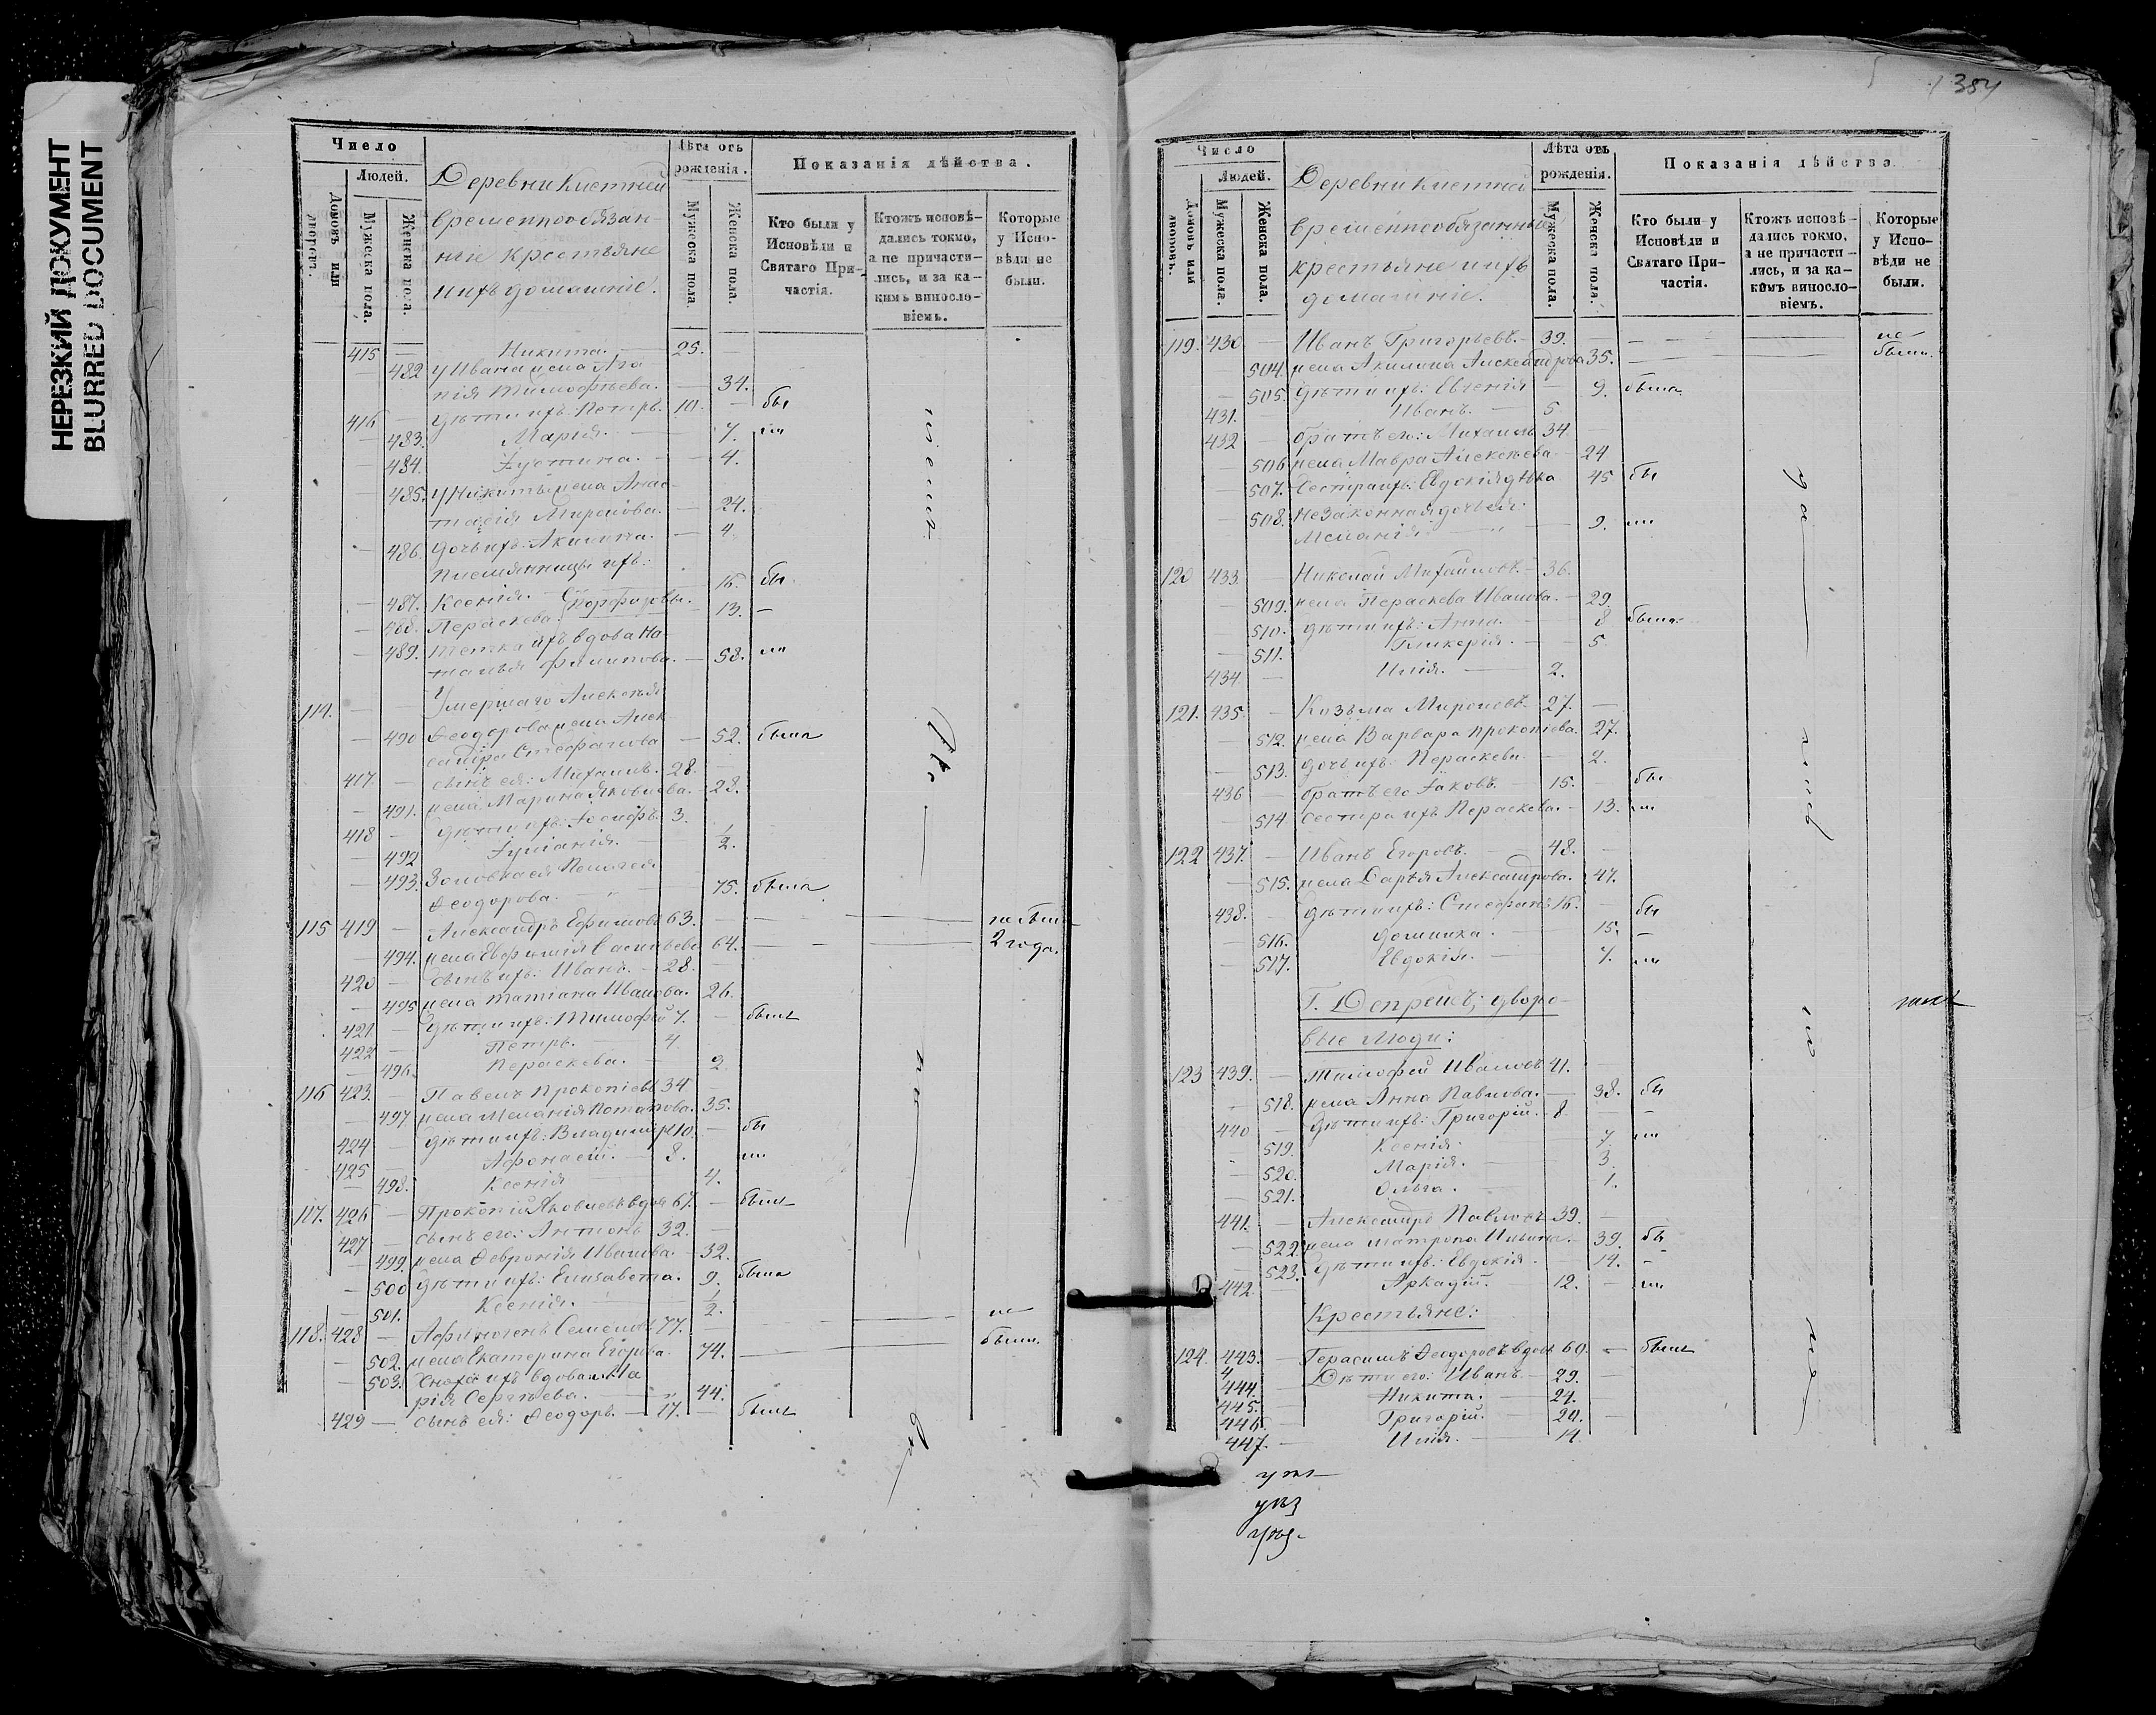 НЕРЕЗКИЙ ДОКУМЕНТ
BLURRED DOCUMENT
Число
Людей.
Домовъ или дворовъ.
Мужеска пола.
Женска пола.
Деревни Кистней
временнообязан-
ные крестьяне
и ихъ домашніе.
Лѣта отъ рожденія.
Мужеска пола.
Женска пола.
Показанія дѣйства.
Кто были у Исповѣди и Святаго При-частія.
Ктожъ исповѣ-дались токмо, а не причасти-лись, и за ка-кимъ виносло-віемъ.
Которые у Испо-вѣди не были.
415 — Никита. — 25. —
482 у Ивана жена Ага
пія Тимофѣева. — 34.
416 — дѣти ихъ: Петръ. 10. — бы
483. Марія. — 7. ли
484. Іустина. — 4.
485. у Никиты жена Анас-
тасія Миронова. — 24.
486. дочь ихъ: Акилина. — 4.
Племянницы ихъ:
487. Ксенія. 16. бы
488. Параскева. Порфировы. 13. —
489. Тетка ихъ вдова На
талья Филипова. — 58. ли
114. Умершаго Алексѣя
490 Ѳеодорова жена Алек
сандра Стефанова — 52. была
417. — сынъ ея: Михаилъ. 28. —
491. жена Марина Яковлева. — 28.
418 — дѣти ихъ: Іосифъ. 3.
492 Іуліанія. — 1/2.
493. Золовка ея Пелагея
Ѳеодорова. — 75. была
115 419 — Александръ Ефимовъ 63. — не были
494. жена Евфимія Васильева 64. — 2 года.
420 — Сынъ ихъ: Иванъ. — 28. —
495 жена Татіана Иванова. 26.
421 — дѣти ихъ: Тимофей 7. — былъ
422 — Петръ. — 4
496. Параскева. — 2
116 423. — Павелъ Прокопіевъ 34
497 жена Меланія Потапова. 35.
424 — дѣти ихъ: Владимиръ 10. — бы
425 — Афонасій. — 8. ли
498. Ксенія — 4.
117. 426 — Прокопій Яковлевъ вдовъ 67. — былъ
427 — сынъ его: Антонъ 32. —
499. жена Ѳевронія Иванова. — 32.
500 дѣти ихъ: Елизавета. 9. была
501. Ксенія. — 1/2.
118. 428 — Афиногенъ Семеновъ 77. — не
502. жена Екатерина Егорова. 74. — были.
503. Сноха ихъ вдова Ма
рія Сергѣева. — 44.
429 — сынъ ея: Ѳеодоръ. — 17. — былъ
1384
Число
Людей.
Домовъ или дворовъ.
Мужеска пола.
Женска пола.
Деревни Кистней
временнообязанные
крестьяне и ихъ
домашніе.
Лѣта отъ рожденія.
Мужеска пола.
Женска пола.
Показанія дѣйства
Кто были у Исповѣди и Святаго При-частія.
Ктожъ исповѣ-дались токмо, а не причасти-лись, и за ка-кимъ виносло-віемъ.
Которые у Испо-вѣди не были.
119. 430 — Иванъ Григорьевъ. — 39. — не
504. жена Акилина Александрова 35. — были.
505. дѣти ихъ: Евгенія — 9. была
431. — Иванъ. — 5
432 — братъ его: Михаилъ 34. —
506 жена Мавра Алексѣева — 24
507. Сестра ихъ: Евдокія дѣвка 45 бы
508. Незаконная дочь ея:
Меланія — 9. ли
120 433. — Николай Михайловъ. — 36.
509. жена Параскева Иванова. — 29.
510. дѣти ихъ: Анна. — 8 была
511. Гликерія. — 5.
434 — Илія. — 2.
121. 435. — Козьма Мироновъ. 27. —
512. жена Варвара Прокопіева. 27.
513. дочь ихъ: Параскева — 2.
436 — братъ его Іаковъ. — 15. — бы
514 Сестра ихъ Параскева. — 13. ли
122 437. — Иванъ Егоровъ. 48. —
515. жена Дарья Александрова. 47.
438. — дѣти ихъ: Стефанъ 16. — бы
516. Домника. — 15. —
517. Евдокія. — 7. ли
Г. Депрейсъ; дворо-
вые люди:
123 439. — Тимофей Ивановъ 41. —
518. жена Анна Павлова. — 38. бы
440 — дѣти ихъ: Григорій. 8. — —
519. Ксенія. — 7 ли
520. Марія. — 3.
521. Ольга. — 1.
441. — Александръ Павловъ 39. —
522. жена Матрона Ильина. — 39. бы
523. дѣти ихъ: Евдокія. — 14. —
442 — Аркадій. — 12. — ли
Крестьяне:
124. 443. — Герасимъ Ѳеодоровъ вдовъ 60. — былъ
444. — Дѣти его: Иванъ. — 29. —
445. — Никита. — 24.
446. — Григорій. — 20. —
447. — Илія. — 14.